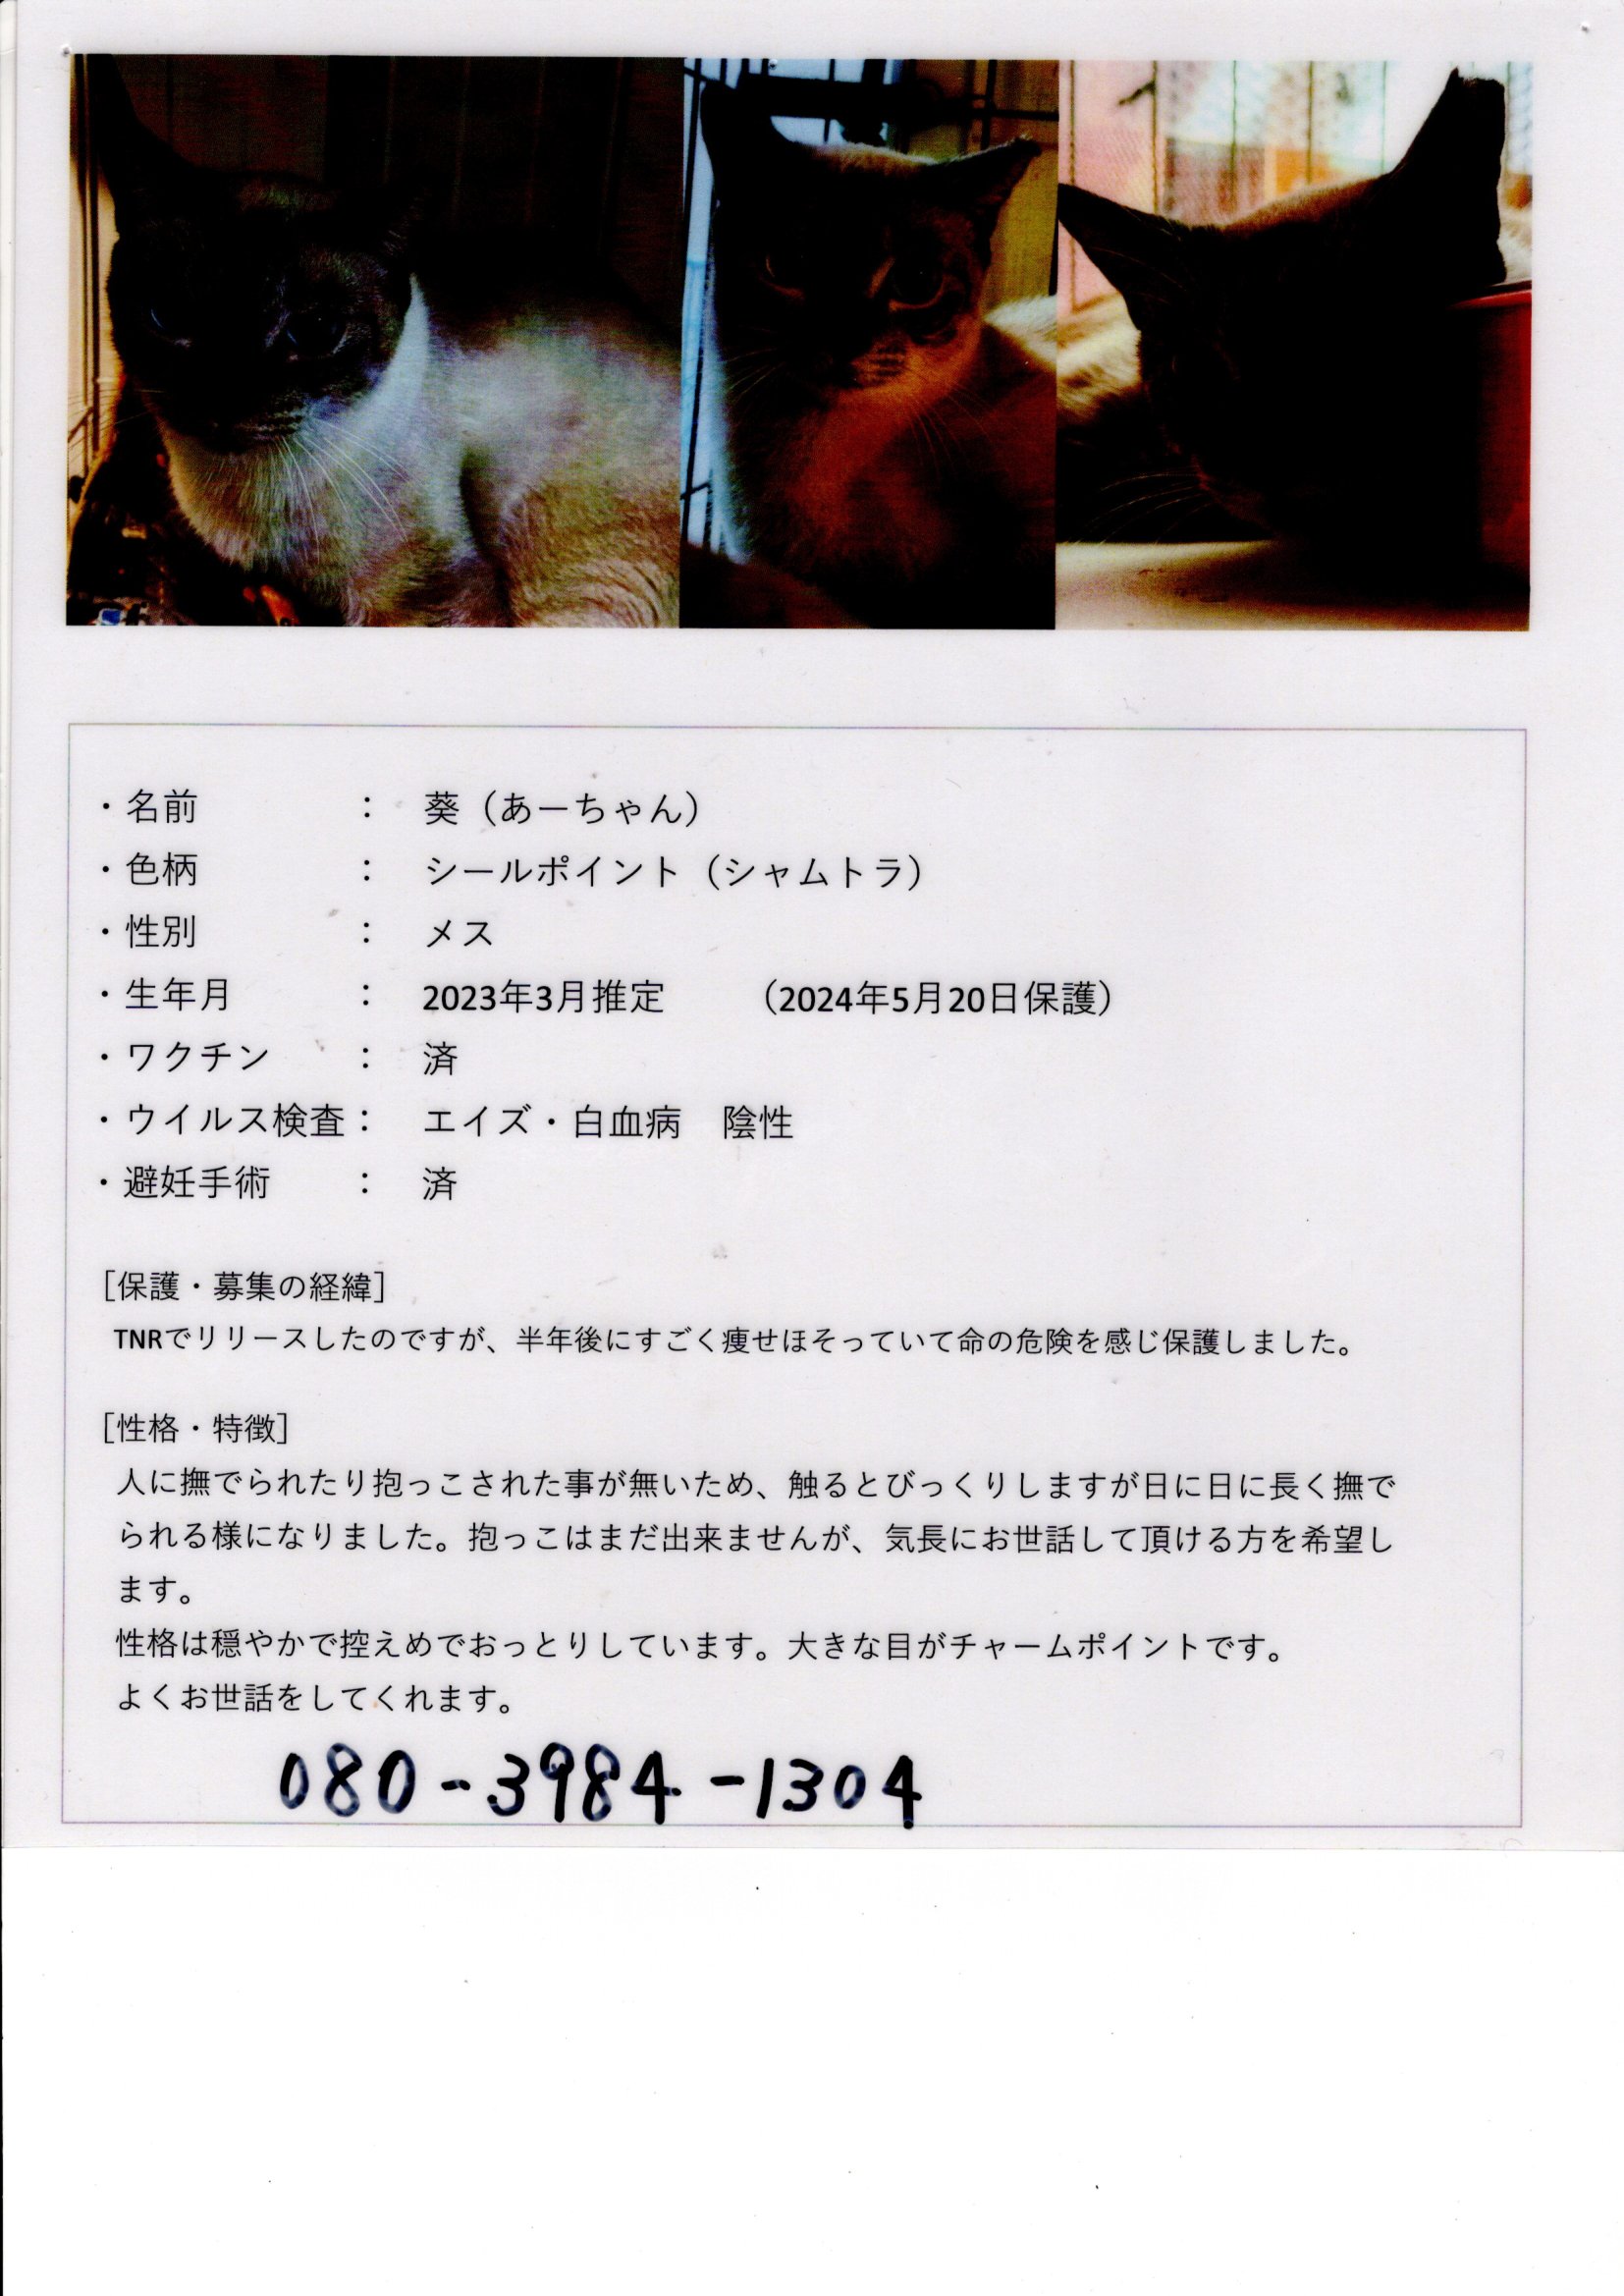 ・名前 ： 葵（あーちゃん）
・色柄 ： シールポイント（シャムトラ）
・性別 ： メス
・生年月 ： 2023年3月推定 （2024年5月20日保護）
・ワクチン ： 済
・ウイルス検査： エイズ・白血病 陰性
・避妊手術 ： 済
［保護・募集の経緯］
TNRでリリースしたのですが、半年後にすごく痩せほそっていて命の危険を感じ保護しました。
［性格・特徴］
人に撫でられたり抱っこされた事が無いため、触るとびっくりしますが日に日に長く撫で
られる様になりました。抱っこはまだ出来ませんが、気長にお世話して頂ける方を希望し
ます。
性格は穏やかで控えめでおっとりしています。大きな目がチャームポイントです。
よくお世話をしてくれます。
080-3984-1304